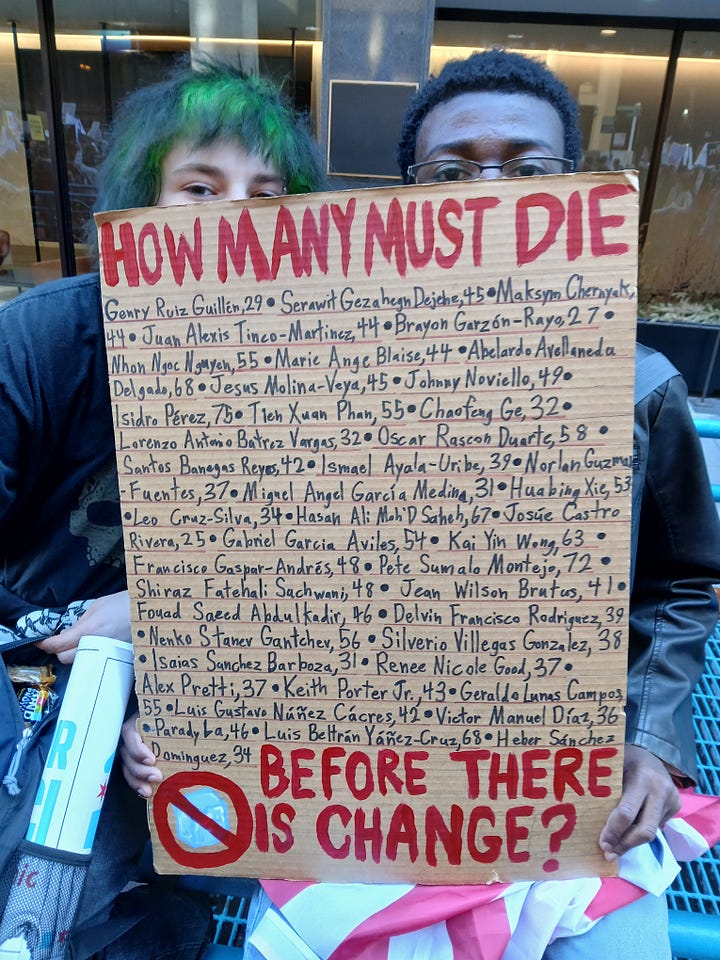 HOW MANY MUST DIE
Genry Ruiz Guillén, 29 • Serawit Gezahegn Dejene, 45 • Maksym Chernyak,
44 • Juan Alexis Tineo-Martinez, 44 • Brayon Garzón-Rayo, 27 •
Nhon Ngoc Nguyen, 55 • Marie Ange Blaise, 44 • Abelardo Avellaneda
Delgado, 68 • Jesus Molina-Veya, 45 • Johnny Noviello, 49 •
Isidro Pérez, 75 • Tien Xuan Phan, 55 • Chaofeng Ge, 32 •
Lorenzo Antonio Batrez Vargas, 32 • Oscar Rascon Duarte, 58 •
Santos Banegas Reyes, 42 • Ismael Ayala-Uribe, 39 • Norlan Guzman
-Fuentes, 37 • Miguel Angel García Medina, 31 • Huabing Xie, 53
• Leo Cruz-Silva, 34 • Hasan Ali Moh'D Saheh, 67 • Josúe Castro
Rivera, 25 • Gabriel Garcia Aviles, 54 • Kai Yin Wong, 63 •
Francisco Gaspar-Andrés, 48 • Pete Sumalo Montejo, 72 •
Shiraz Fatehali Sachwani, 48 • Jean Wilson Brutus, 41 •
Fouad Saeed Abdulkadir, 46 • Delvin Francisco Rodriguez, 39
• Nenko Stanev Gantchev, 56 • Silverio Villegas Gonzalez, 38
• Isaias Sanchez Barboza, 31 • Renee Nicole Good, 37 •
Alex Pretti, 37 • Keith Porter Jr., 43 • Geraldo Lunas Campos,
55 • Luis Gustavo Núñez Cácres, 42 • Victor Manuel Díaz, 36
• Parady La, 46 • Luis Beltrán Yáñez-Cruz, 68 • Heber Sánchez
Domínguez, 34
BEFORE THERE
IS CHANGE?